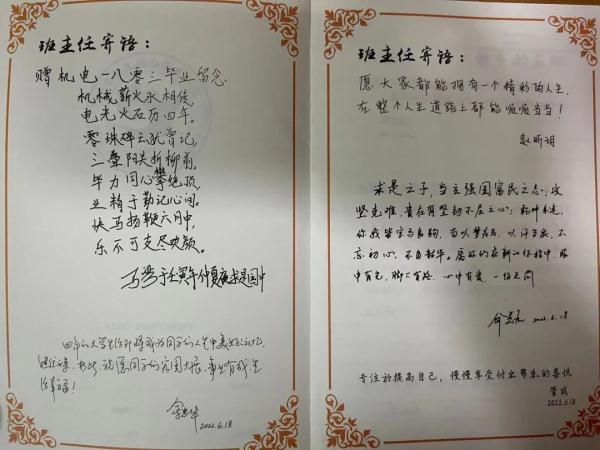 班主任寄语：
赠机电一八零三毕业留念
机械薪火永相传，
电光火石历四年。
零珠碎玉犹曾记，
三叠阳关折柳前。
毕力同心攀绝顶，
业精于勤记心间。
快马扬鞭六月中，
乐不可支尽欢颜。
于壬寅年仲夏夜求是园中
四年的大学生活即将成为同学们人生中美好的记忆，
祝愿同学们宏图大展，事业有成，生
活幸福！
2022.6.18
班主任寄语：
愿大家都能拥有一个精彩的人生，
在整个人生道路上都能呱呱当当！
赵昕玥
求是之子，当立强国富民之志；攻
坚克难，贵在有坚韧不屈之心；乾坤未定，
你我皆黑马良驹，当以梦为马，以汗为泉，不
忘初心，不负韶华。愿你们在新的征程中，眼
中有光，脚下有路，心中有爱，一往无前
2022.6.18
专注於提高自己，慢慢享受付出带来的喜悦
管成
2022.6.18